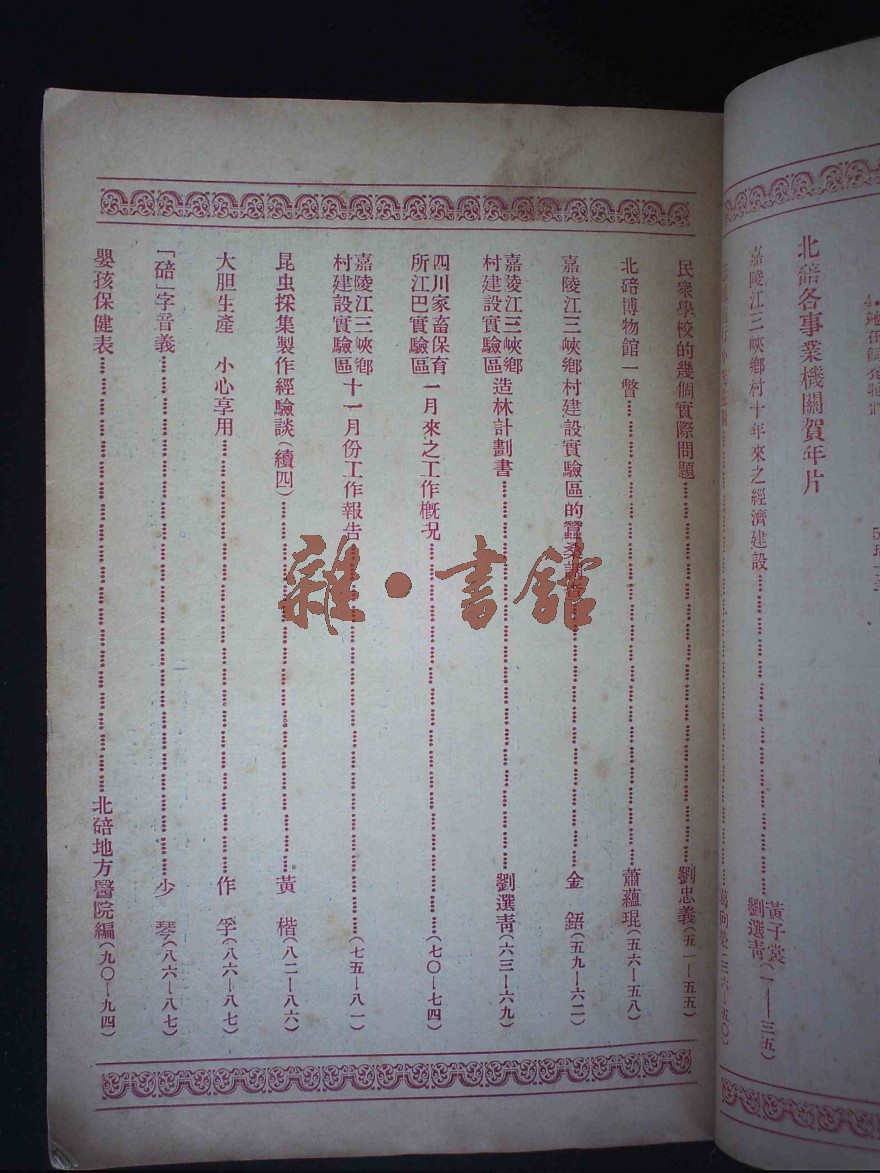 北碚各事業機關賀年片
嘉陵江三峽鄉村十年來之經濟建設 黃子裳 劉選青(一——三五)
民衆學校的幾個實際問題 劉忠義(五一—五五)
北碚博物館一瞥 蕭蘊琨(五六—五八)
嘉陵江三峽鄉村建設實驗區的蠶桑調查 金鋙(五九—六二)
嘉陵江三峽鄉村建設實驗區造林計劃書 劉選靑(六三—六九)
四川家畜保育所江巴實驗區一月來之工作概况(七〇—七四)
嘉陵江三峽鄉村建設實驗區十一月份工作報告(七五—八一)
昆虫採集製作經驗談(續四) 黃楷(八二—八六)
大胆生產 小心享用 作孚(八六—八七)
「碚」字音義 少琴(八六—八七)
嬰孩保健表 北碚地方醫院編(九〇—九四)
雜·書館